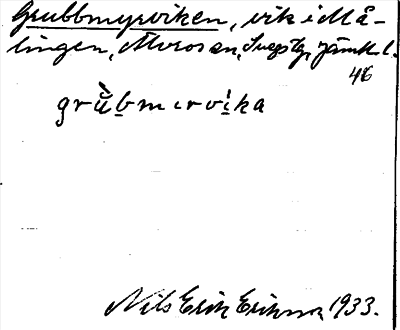 Grubbmyrviken, vik i Må-
lingen, Moroson, Svegstg, Jämtl. l.
46
grùbmɩrvi̇ka
Nils Erik Eriksson 1933.